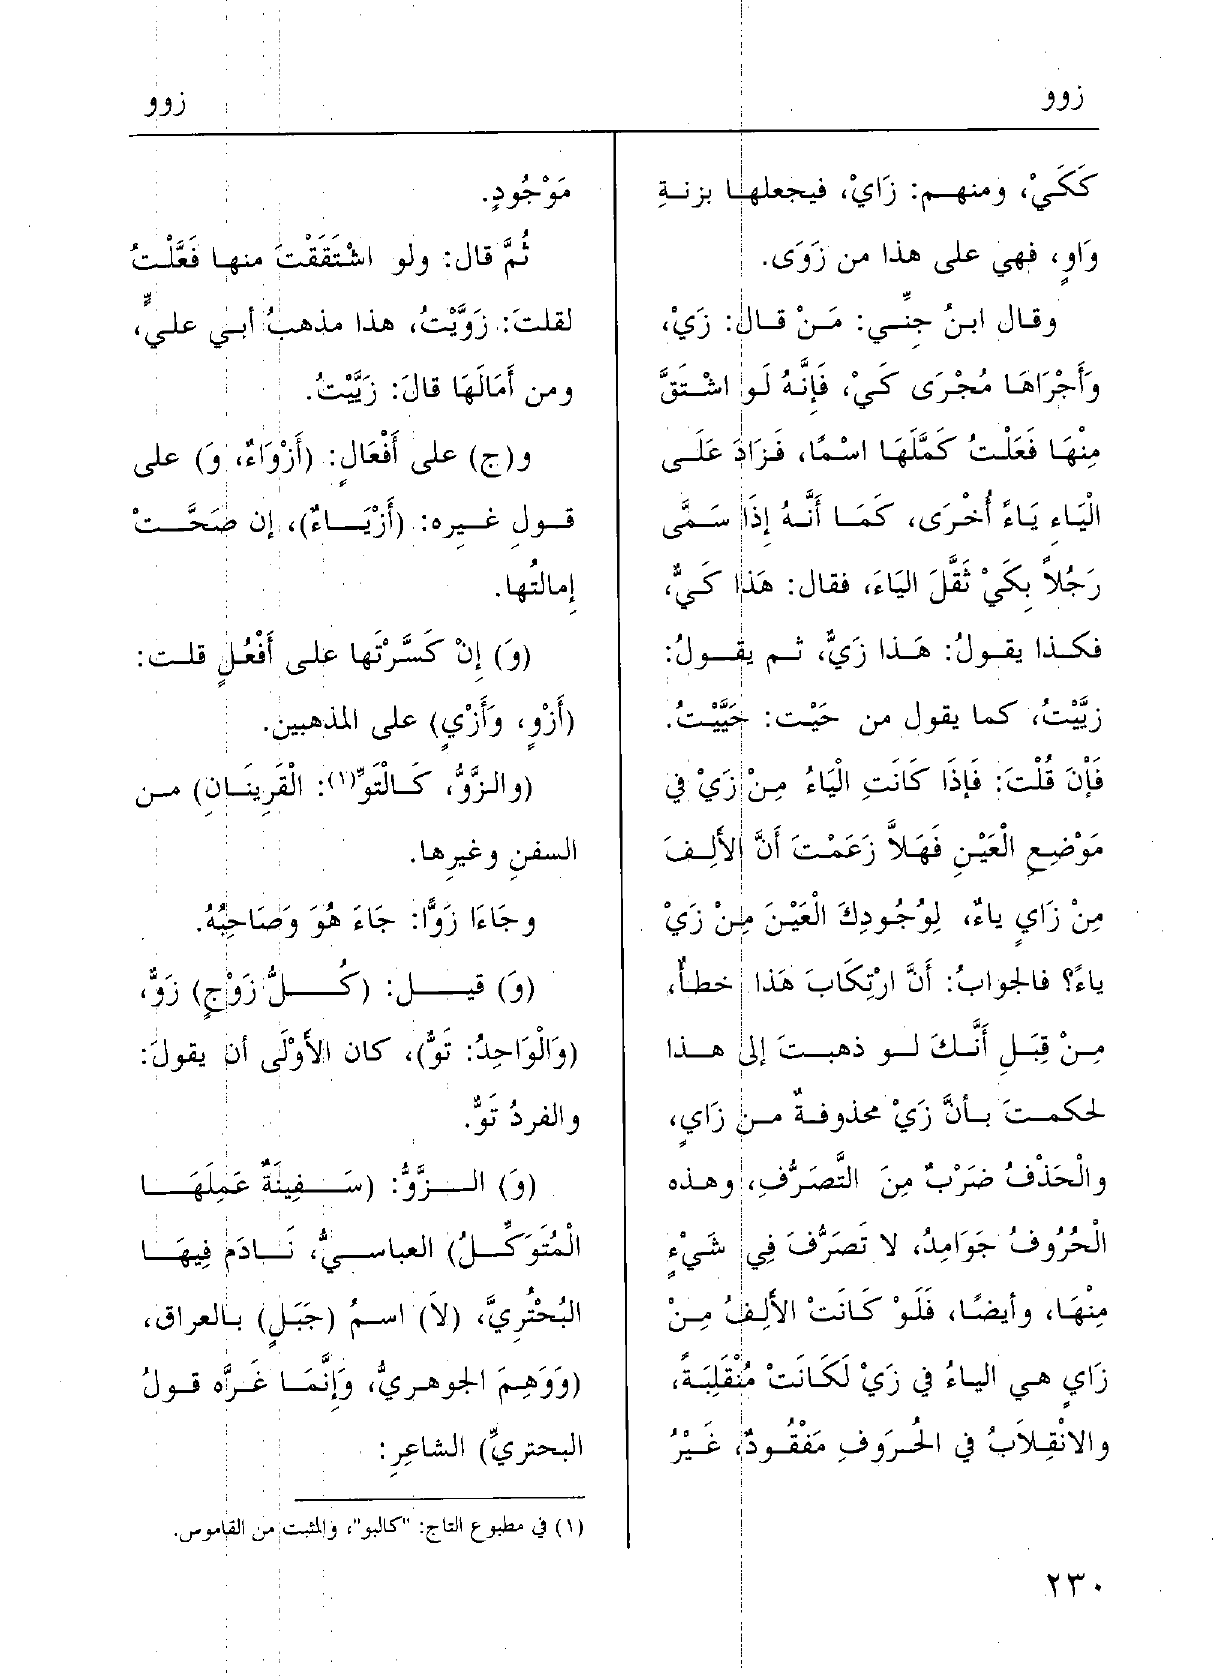 زوو
زوو
كَكَيْ، ومنهم: زَايْ، فيجعلها بزنةِ
وَاوٍ، فهي على هذا من زَوَى.
وقال ابنُ جِنِّي: مَنْ قال: زَيْ،
وَأَجْرَاهَا مُجْرَى كَيْ، فَإِنَّهُ لَو اشْتَقَّ
مِنْهَا فَعَلْتُ كَمَّلَهَا اسْمًا، فَزَادَ عَلَى
الْيَاءِ يَاءً أُخْرَى، كَمَا أَنَّهُ إِذَا سَمَّى
رَجُلاً بِكَيْ ثَقَّلَ اليَاءَ، فقال: هَذَا كَيٌّ،
فكذا يقولُ: هَذا زَيٌّ، ثم يقولُ:
زيَّيْتُ، كما يقول من حَيْت: حَيَّيْتُ.
فَإِنْ قُلْتَ: فَإِذَا كَانَتِ الْيَاءُ مِنْ زَيْ في
مَوْضِعِ الْعَيْنِ فَهَلاَّ زَعَمْتَ أَنَّ الأَلِفَ
مِنْ زَايٍ ياءٌ، لِوُجُودِكَ الْعَيْنَ مِنْ زَيْ
ياءً؟ فالجوابُ: أَنَّ ارْتِكَابَ هَذَا خطأٌ،
مِنْ قِبَلِ أَنَّكَ لو ذهبتَ إلى هذا
لحكمتَ بأنَّ زَيْ محذوفةٌ من زَايٍ،
والْحَذْفُ ضَرْبٌ مِنَ التَّصَرُّفِ، وهذه
الْحُرُوفُ جَوَامِدُ، لا تَصَرُّفَ فِي شَيْءٍ
مِنْهَا، وأيضًا، فَلَوْ كَانَتْ الأَلِفُ مِنْ
زَايٍ هي الياءُ في زَيْ لَكَانَتْ مُنْقَلِبَةً،
والانْقِلاَبُ في الحُرَوفِ مَفْقُودٌ، غَيْرُ
مَوْجُودٍ.
ثُمَّ قال: ولو اشْتَقَقْتَ منها فَعَّلْتُ
لقلتَ: زَوَّيْتُ، هذا مذهبُ أبي عليٍّ،
ومن أَمَالَهَا قالَ: زَيَّيْتُ.
و(ج) على أَفْعَالٍ: (أَزْوَاءٌ، وَ) على
قولِ غيرِه: (أَزْيَاءٌ)، إن صَحَّتْ
إمالتُها.
(وَ) إِنْ كَسَّرْتَها على أَفْعُلٍ قلت:
(أَزْوٍ، وَأَزْيٍ) على المذهبين.
(والزَّوُّ، كَالتَّوِّ(١): الْقَرِينَانِ) من
السفنِ وغيرِها.
وجَاءَا زَوًّا: جَاءَ هُوَ وَصَاحِبُهُ.
(وَ) قيل: (كُلُّ زَوْجٍ) زَوٌّ،
(وَالْوَاحِدُ: تَوٌّ)، كان الأَوْلَى أن يقولَ:
والفردُ تَوٌّ.
(وَ) الزَّوُّ: (سَفِينَةٌ عَمِلَهَا
الْمُتَوَكِّلُ) العباسيُّ، نَادَمَ فِيهَا
البُحْتُرِيَّ، (لاَ) اسمُ (جَبَلٍ) بالعراقِ،
(وَوَهِمَ الجوهريُّ، وَإِنَّمَا غَرَّه قولُ
البحتريِّ) الشاعرِ:
(١) في مطبوع التاج: "كالبو"، والمثبت من القاموس.
٢٣٠